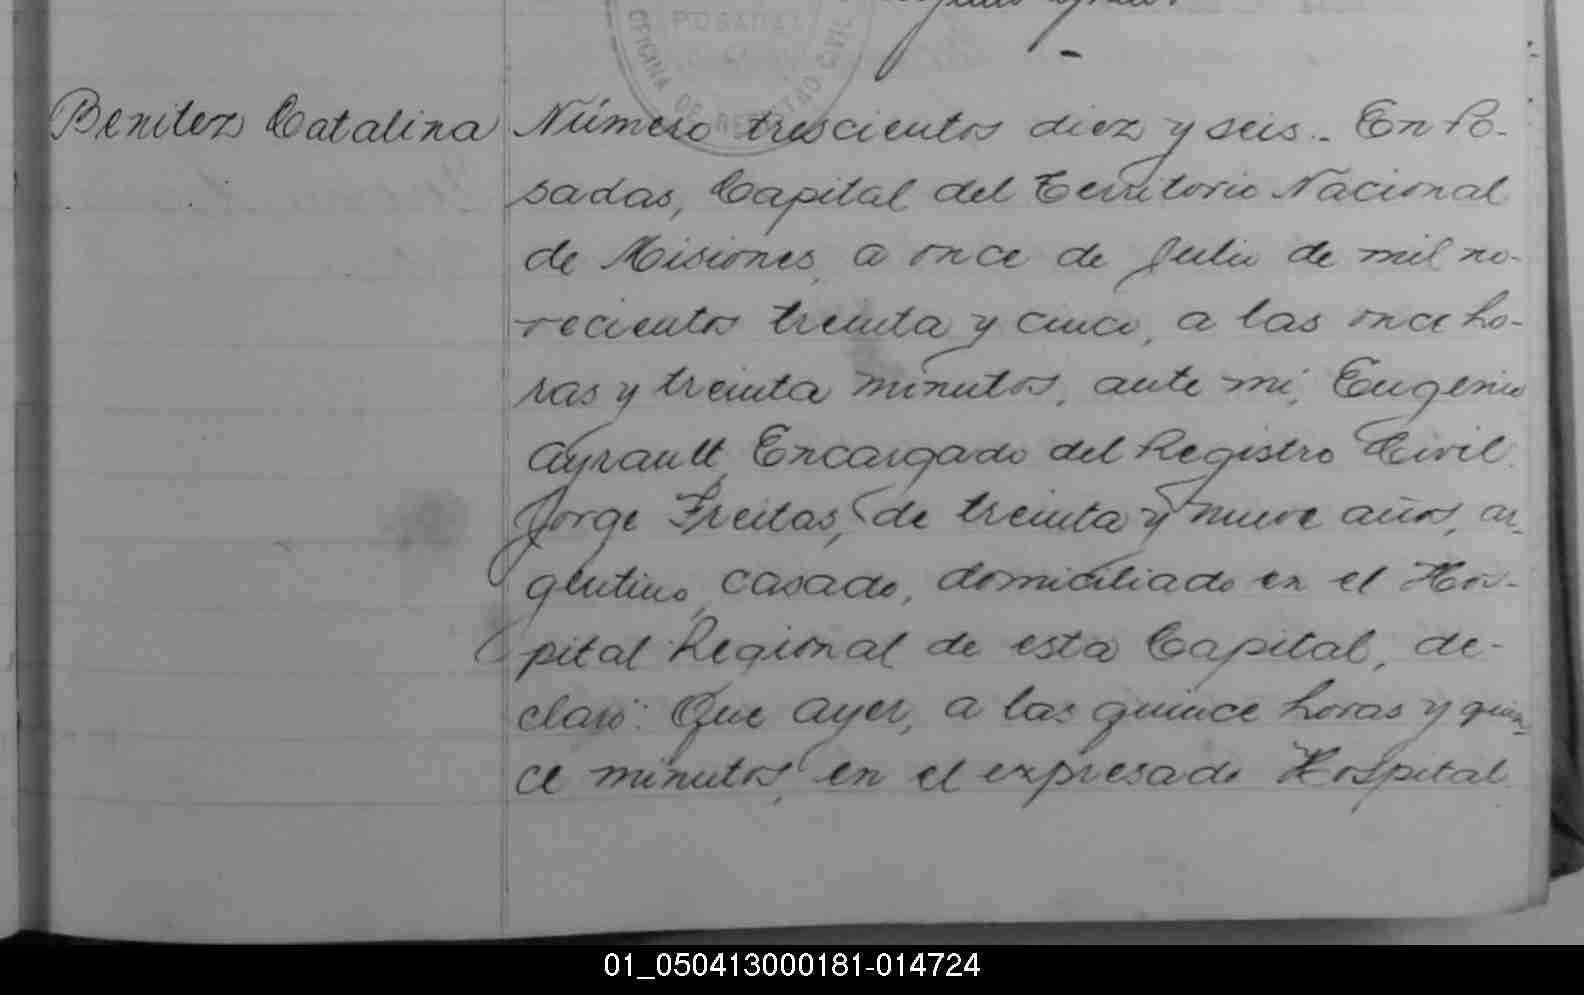 POSADAS
OFICINA DE REGISTRO CIVIL
Benitez Catalina
Número trescientos diez y seis.. En Po-
sadas, Capital del Territorio Nacional
de Misiones, a once de Julio de mil no-
vecientos treinta y cinco, a las once ho-
ras y treinta minutos, ante mi, Eugenio
Ayrault, Encargado del Registro Civil.
Jorge Freitas, de treinta y nueve años, ar-
gentino, casado, domiciliado en el Hos-
pital Regional de esta Capital, de-
claró: Que ayer, a las quince horas y quin-
ce minutos, en el expresado Hospital
01_050413000181-014724